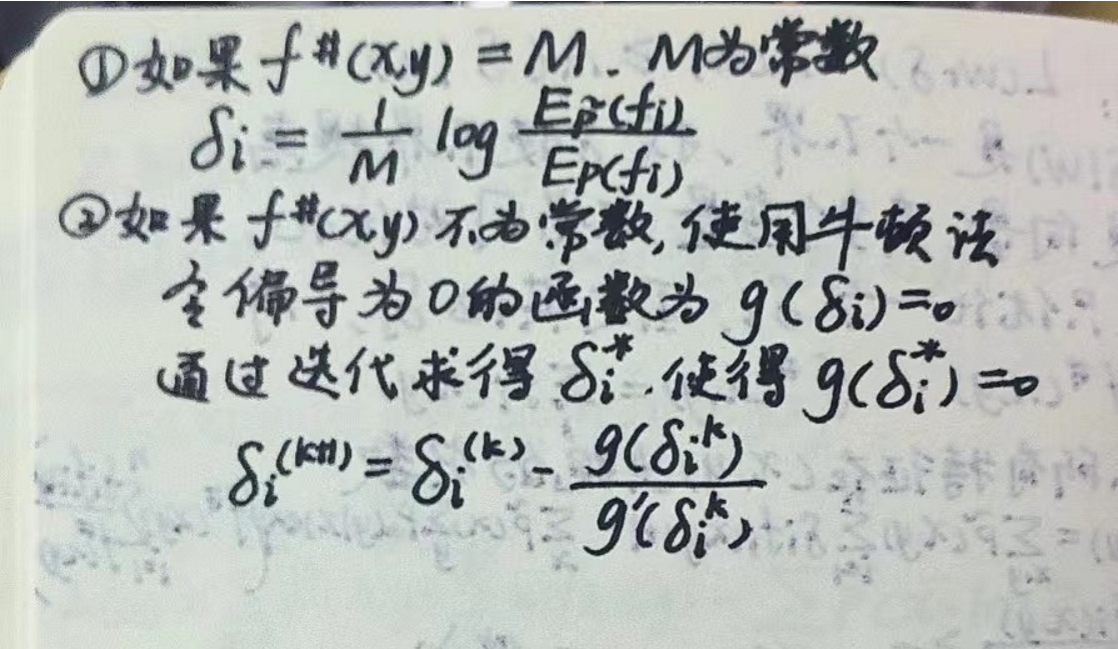 ①如果 f^#(x,y) = M. M为常数
δi = 1/M log Ep̃(fi)/Ep(fi)
②如果 f^#(x,y) 不为常数, 使用牛顿法
令偏导为0的函数为 g(δi)=0
通过迭代求得 δi^*. 使得 g(δi^*)=0
δi^(k+1) = δi^(k) - g(δi^k)/g'(δi^k)